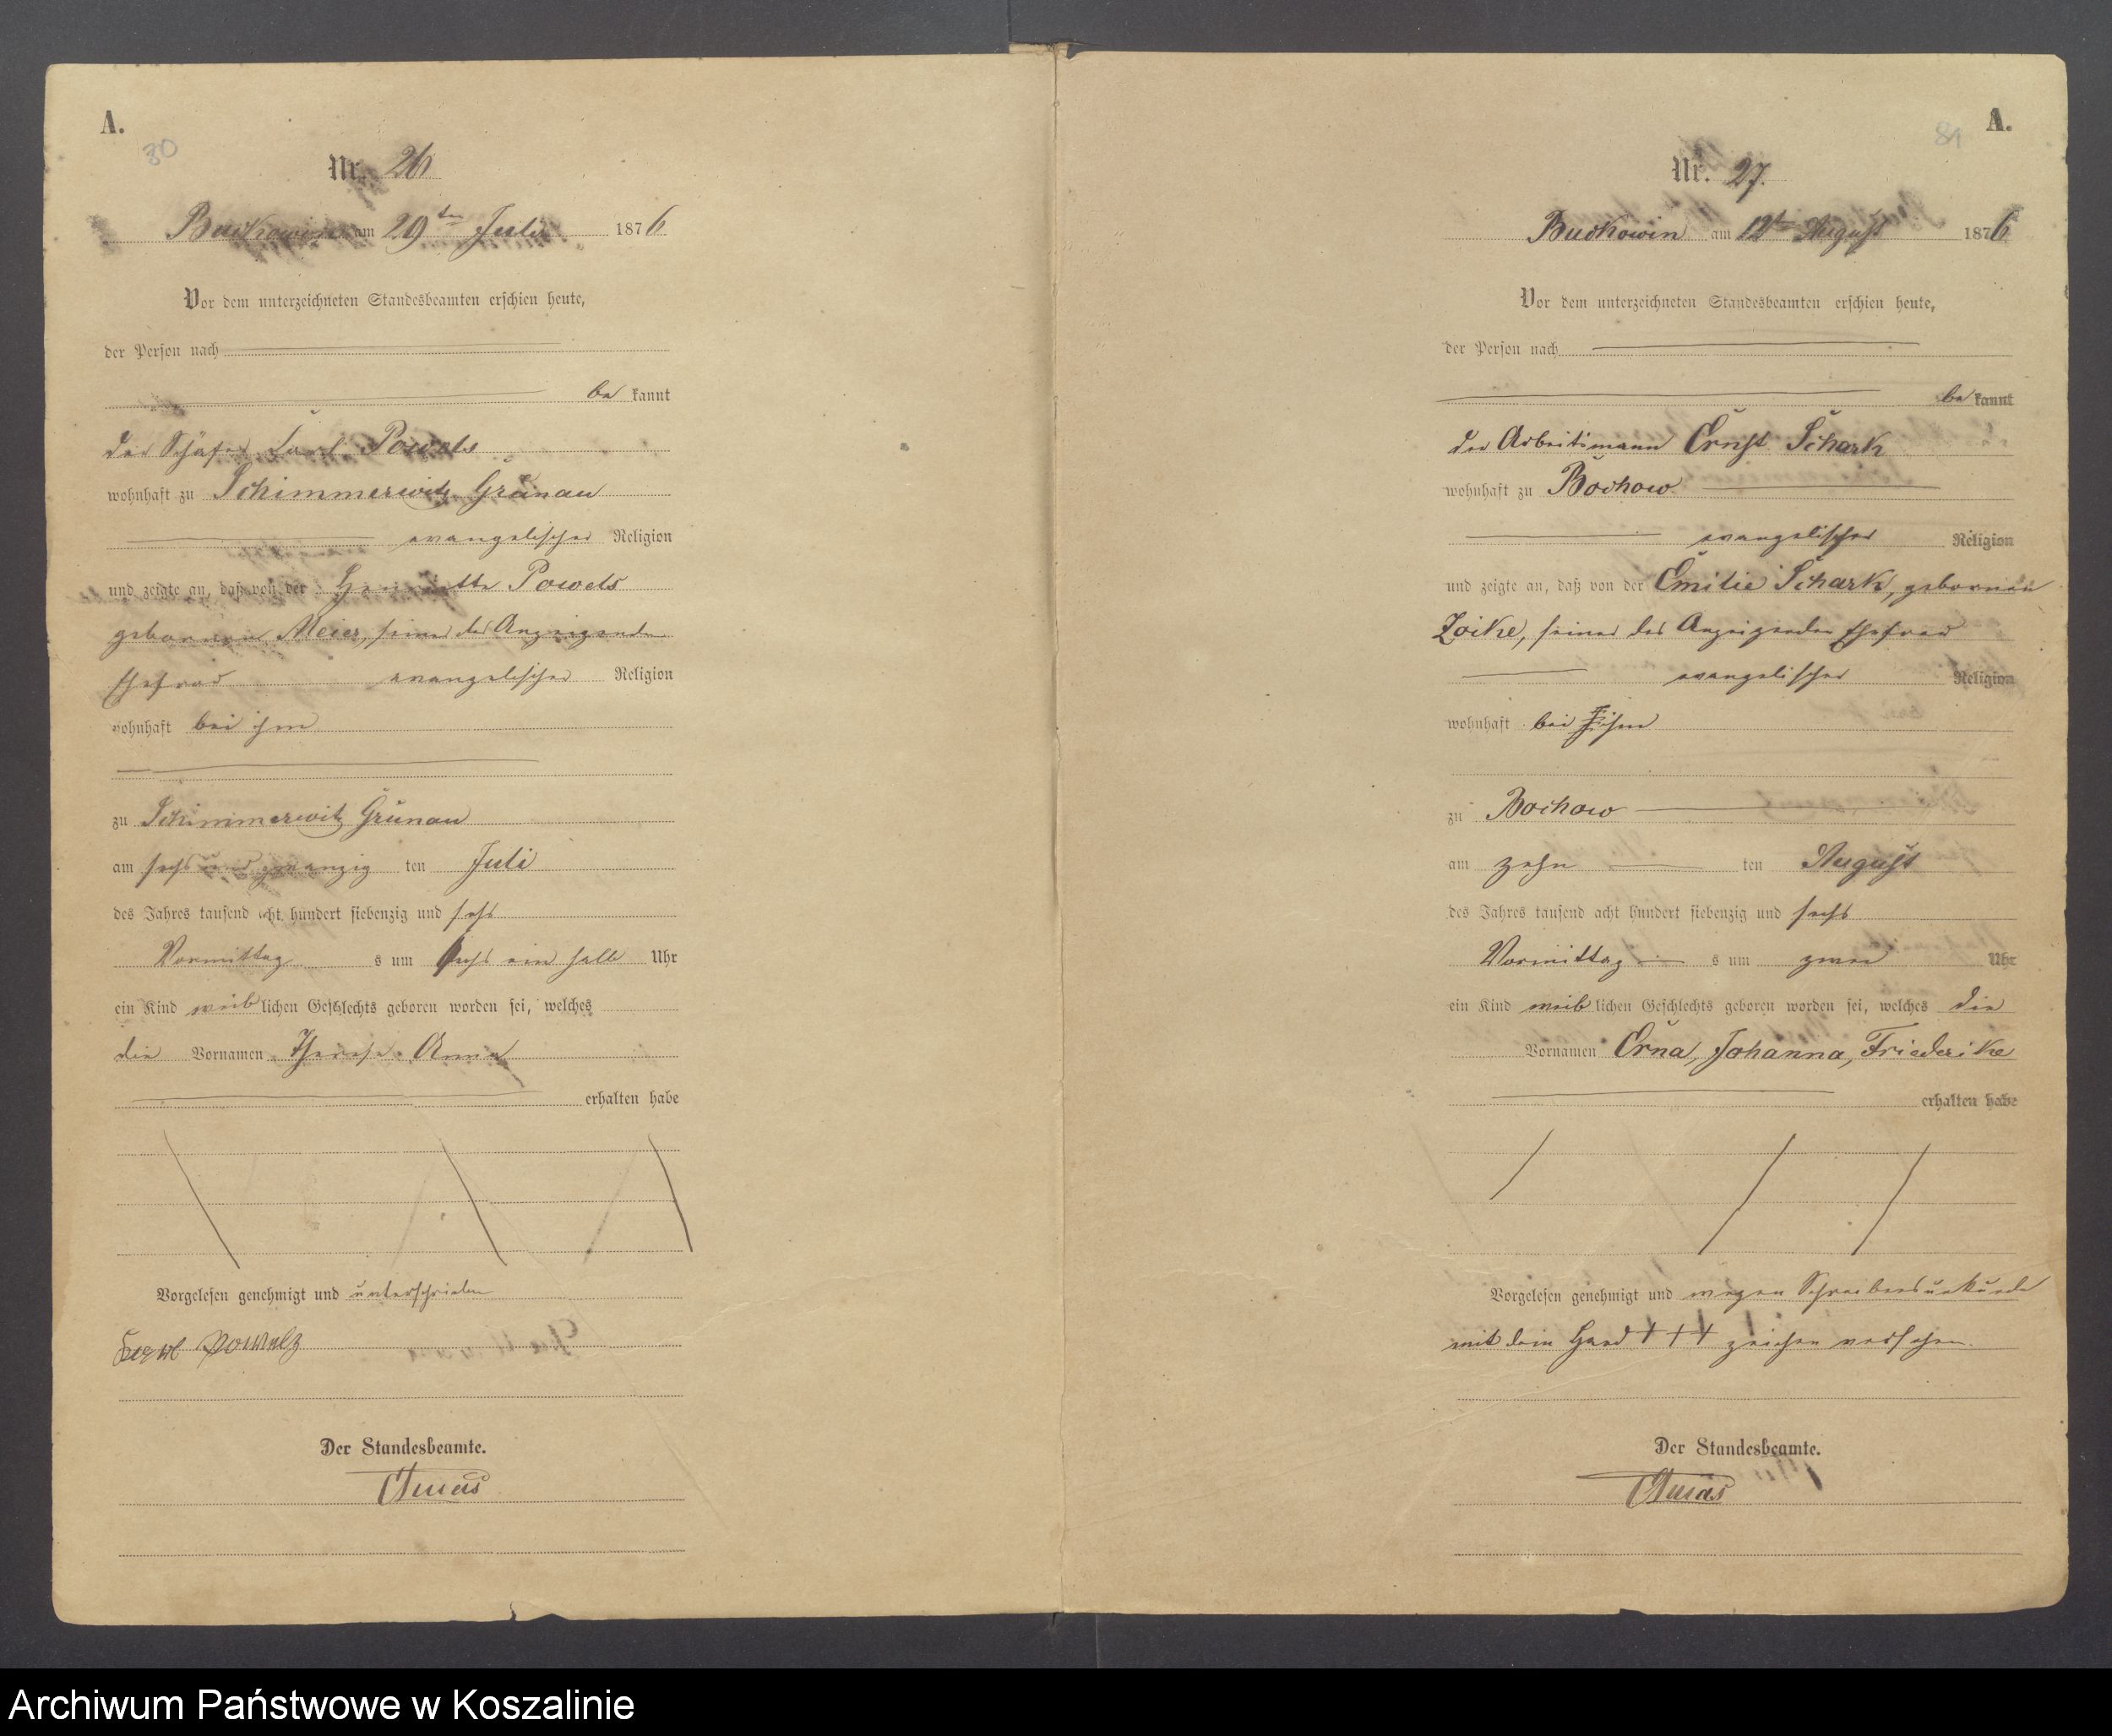 A.
30
Nr. 26
Buckowin am 29ten Juli 1876
Vor dem unterzeichneten Standesbeamten erschien heute,
der Person nach
be kannt
der Schäfer Carl Powels
wohnhaft zu Schimmerwitz Grünau
evangelischer Religion
und zeigte an, daß von der Powels
gebornen Meier, seiner des Anzeigenden
Ehefrau evangelischer Religion
wohnhaft bei ihm
zu Schimmerwitz Grünau
am sechs und zwanzig ten Juli
des Jahres tausend acht hundert siebenzig und sechs
Vormittag s um sechs ein halb Uhr
ein Kind weib lichen Geschlechts geboren worden sei, welches
die Vornamen Therese Anna
erhalten habe
Vorgelesen genehmigt und unterschrieben
Der Standesbeamte.
A.
81
Nr. 27.
Buckowin am 12ten August 1876
Vor dem unterzeichneten Standesbeamten erschien heute,
der Person nach
be kannt
der Arbeitsmann Ernst Schark
wohnhaft zu Bochow
evangelischer Religion
und zeigte an, daß von der Emilie Schark, gebornen
Zoike, seiner des Anzeigenden Ehefrau
evangelischer Religion
wohnhaft bei ihm
zu Bochow
am zehn ten August
des Jahres tausend acht hundert siebenzig und sechs
Vormittag s um zwei Uhr
ein Kind weib lichen Geschlechts geboren worden sei, welches die
Vornamen Erna, Johanna, Friederike
erhalten habe
Vorgelesen genehmigt und wegen Schreibensunkunde
mit dem Hand + + + zeichen versehen.
Der Standesbeamte.
Archiwum Państwowe w Koszalinie